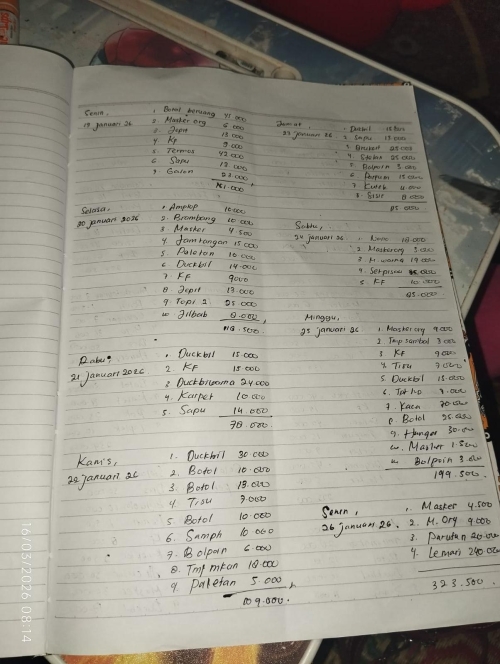 Senin,
19 januari 26
1. Botol beruang 41 000
2. Masker org 5 000
3. Jepit 13 000
4. KF 9 000
5. Termos 42 000
6. Sapu 13 000
7. Galon
Selasa,
20 januari 2026
1. Amplop 10.000
2. Brombong 10 000
3. Masker 4 500
4. Jam tangan 15 000
5. Paletan 10 000
6. Duckbil 14 000
7. KF 9000
8. Jepit 13 000
9. Topi 2 25 000
10. Jilbab 8.000
118.500
Rabu,
21 januari 2026
1. Duckbil 15 000
2. KF 15 000
3. Duckbilwarna 24 000
4. Karpet 10 000
5. Sapu 14 000
78 000
Kamis,
22 januari 26
1. Duckbil 30 000
2. Botol 10.000
3. Botol 13.000
4. Tisu 7.000
5. Botol 10 000
6. Samph 10 000
7. Bolpoin 6 000
8. Tmp mkan 18 000
9. Paketan 5 000
109.000.
Jumat,
23 januari 26
1. Duckbil
2. Sapu 13 000
3. Brukat
4. 25 000
5. Bolpoin 3 000
6.
7. Kutek 4 000
8. Sisir 8 000
85 000
Sabtu,
24 januari 26
1. 18 000
2. Masker org 5 000
3. M. warna 17 000
4. Set pisau
5. KF 10 500
85 000
Minggu,
25 januari 26
1. Masker org 9 000
2. Tmp sambal 3 000
3. KF 9 000
4. Tisu 7.000
5. Duckbil 15.000
6.
7. Kaca 70.000
8. Botol 25.000
9. Hanger 30.000
10. Masker 1.500
11. Bolpoin 3.000
199.500.
Senin,
26 januari 26.
1. Masker 4.500
2. M. Org 9.000
3. Parutan 20.000
4. Lemari 290.000
323.500.
16/03/2026 08:14